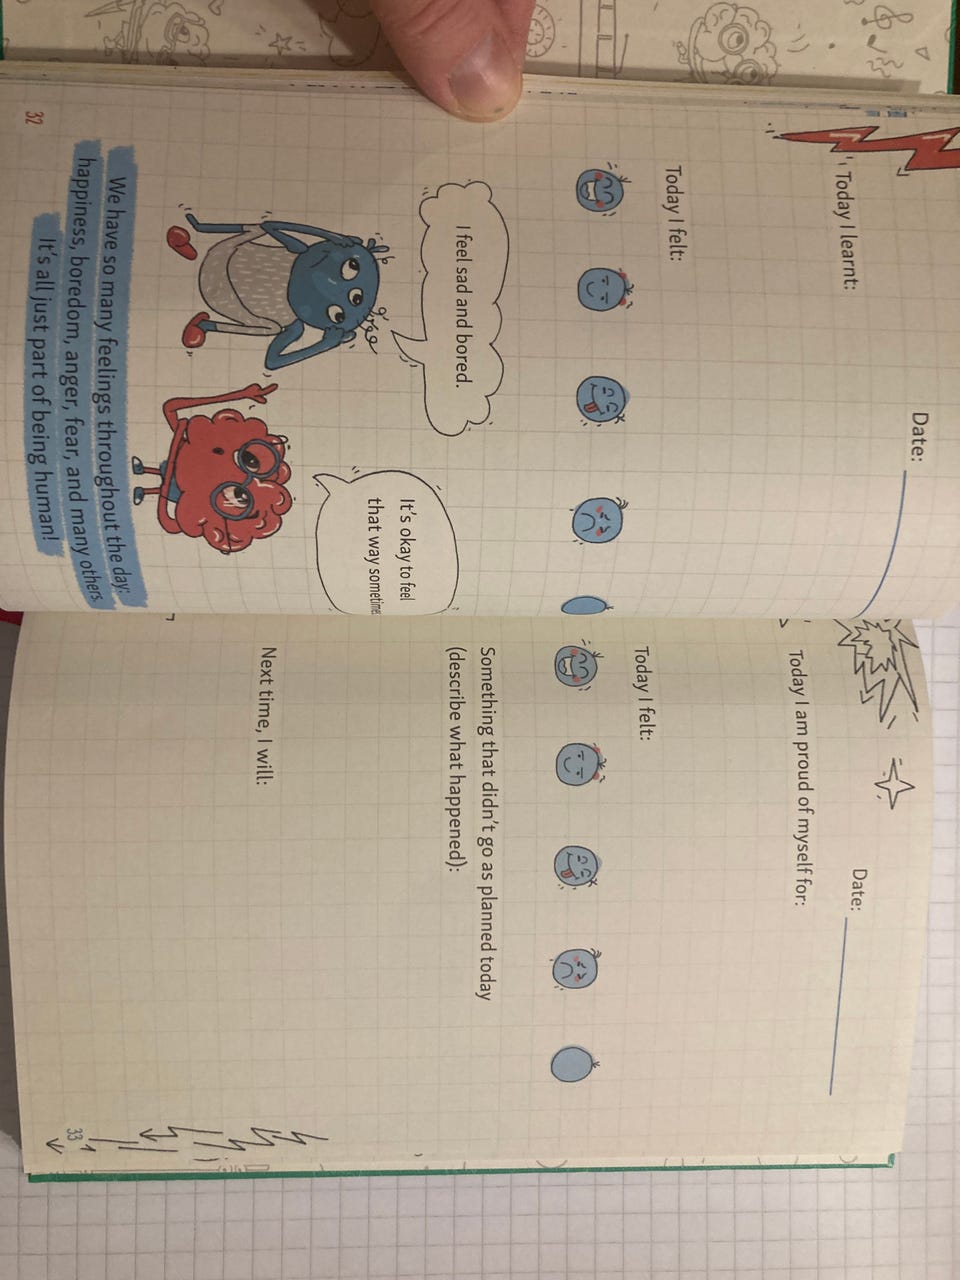 Date:
Today I learnt:
Today I felt:
I feel sad and bored.
It's okay to feel
that way sometimes
We have so many feelings throughout the day:
happiness, boredom, anger, fear, and many others.
It's all just part of being human!
32
Date:
Today I am proud of myself for:
Today I felt:
Something that didn't go as planned today
(describe what happened):
Next time, I will:
33